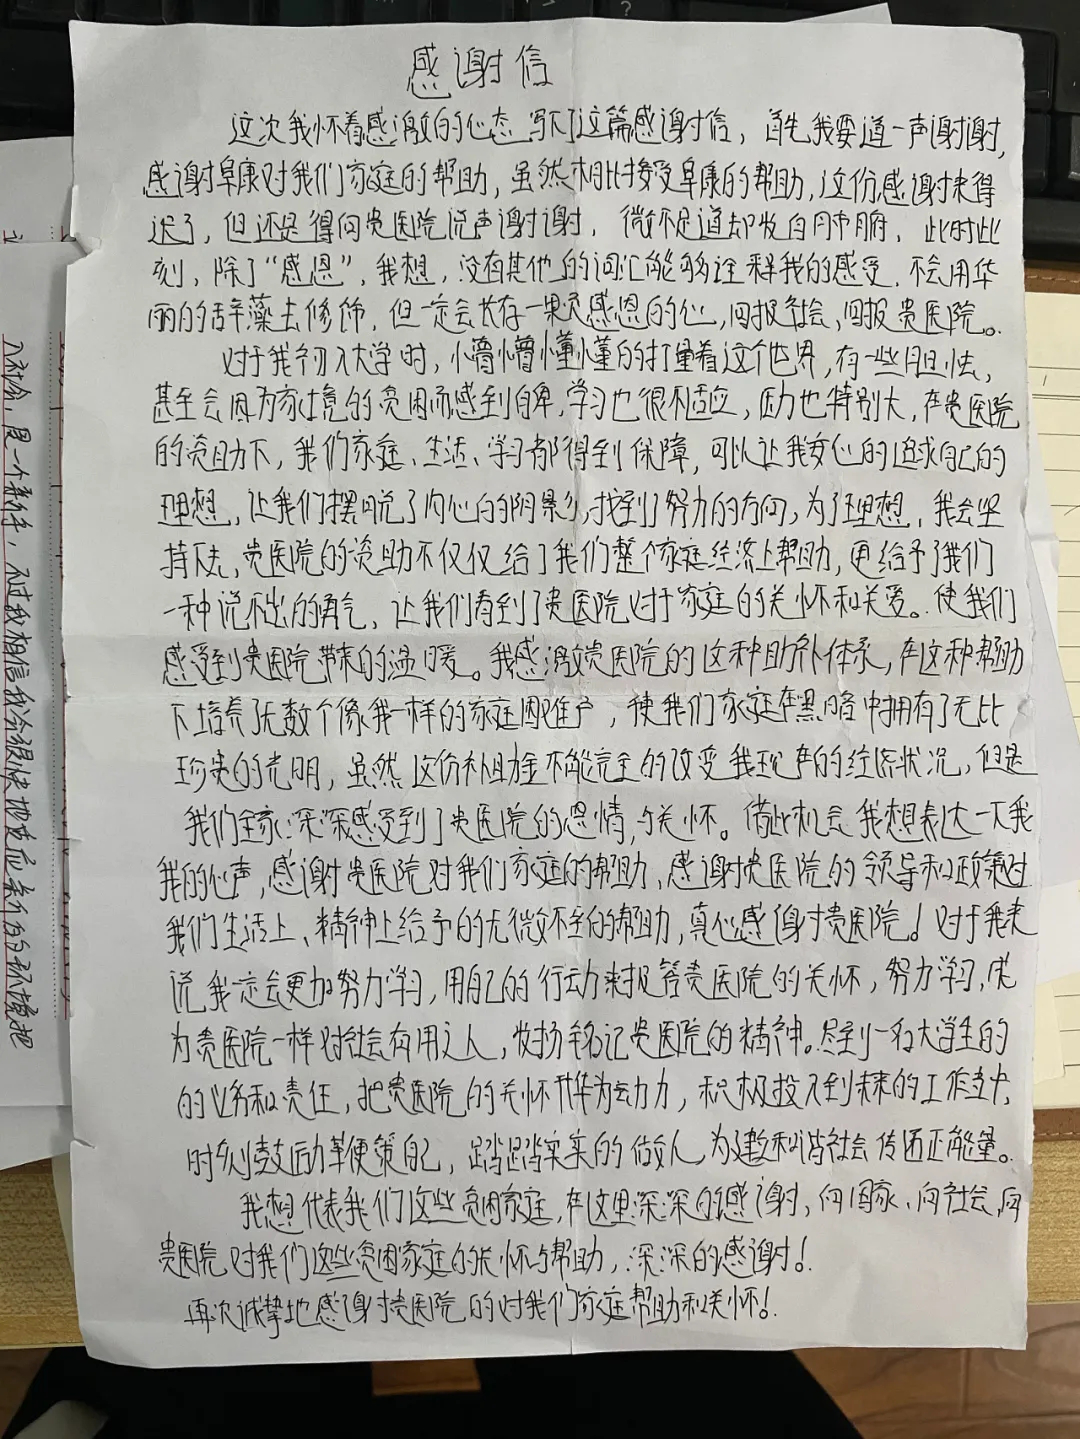 感谢信
这次我怀着感激的的心态写下了这篇感谢信，首先我要道一声谢谢，
感谢阜康对我们家庭的帮助，虽然相比接受阜康的帮助，这份感谢来得
迟了，但还是得向贵医院说声谢谢，微不足道却发自肺腑，此时此
刻，除了“感恩”，我想，没有其他的词汇能够诠释我的感受，不会用华
丽的辞藻去修饰，但一定会长存一颗感恩的心，回报社会，回报贵医院。
对于我初入大学时，懵懵懂懂的打量着这个世界，有一些胆怯，
甚至会因为家境的贫困而感到自卑，学习也很不适应，压力也特别大，在贵医院
的资助下，我们家庭、生活、学习都得到保障，可以让我安心的追求自己的
理想，让我们摆脱了内心的阴影，找到了努力的方向，为了理想，我会坚
持下去，贵医院的资助不仅仅给了我们整个家庭经济上帮助，更给予了我们
一种说不出的勇气，让我们看到了贵医院对于家庭的关怀和关爱。使我们
感受到贵医院带来的温暖。我感激贵医院的这种助补体系，在这种帮助
下培养了无数个像我一样的家庭困难户，使我们家庭在黑暗中拥有了无比
珍贵的光明，虽然这份补助金不能完全的改变我现在的经济状况，但是
我们全家深深感受到了贵医院的恩情，与关怀。借此机会我想表达一下我
我的心声，感谢贵医院对我们家庭的帮助，感谢贵医院的领导和政策对
我们生活上、精神上给予的无微不至的帮助，真心感谢贵医院！对于我来
说我一定会更加努力学习，用自己的行动来报答贵医院的关怀，努力学习，成
为贵医院一样对社会有用之人，发扬铭记贵医院的精神。尽到一名大学生的
的义务和责任，把贵医院的关怀升华为动力，积极投入到未来的工作当中，
时刻鼓励鞭策自己，踏踏实实的做人，为建和谐社会传递正能量。
我想代表我们这些贫困家庭，在这里深深的感谢，向国家、向社会，向
贵医院对我们这些贫困家庭的关怀与帮助，深深的感谢！
再次诚挚地感谢贵医院的对我们家庭帮助和关怀！